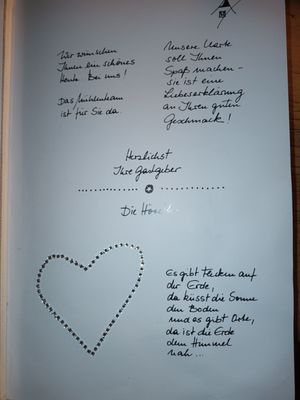 Wir wünschen
Ihnen ein schönes
Heute bei uns!
Das Mühlenteam
ist für Sie da.
Unsere Karte
soll Ihnen
Spaß machen –
sie ist eine
Liebeserklärung
an Ihren guten
Geschmack!
Herzlichst
Ihre Gastgeber
Die
Es gibt Flecken auf
der Erde,
da küsst die Sonne
den Boden
und es gibt Orte,
da ist die Erde
dem Himmel
nah...